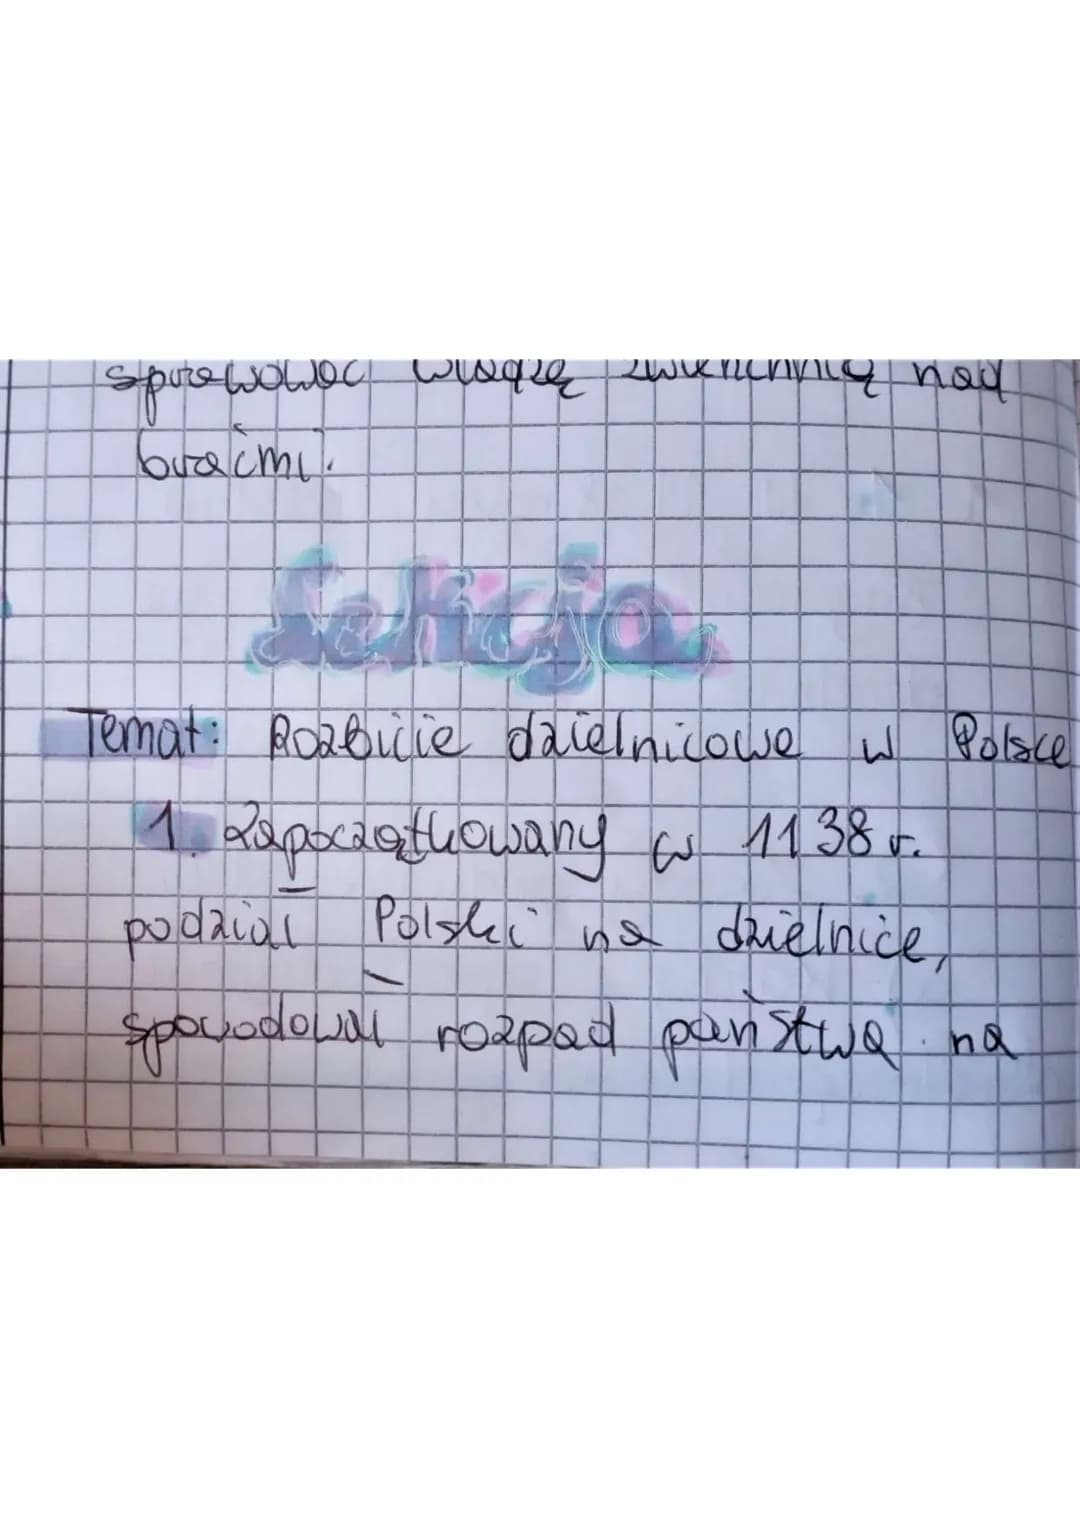 sprawować władzę zwierzchnią nad
braćmi.
Lekcja
Temat: Rozbicie dzielnicowe w Polsce
1. Zapoczątkowany w 1138 r.
podział Polski na dzielnice,
spowodował rozpad państwa na